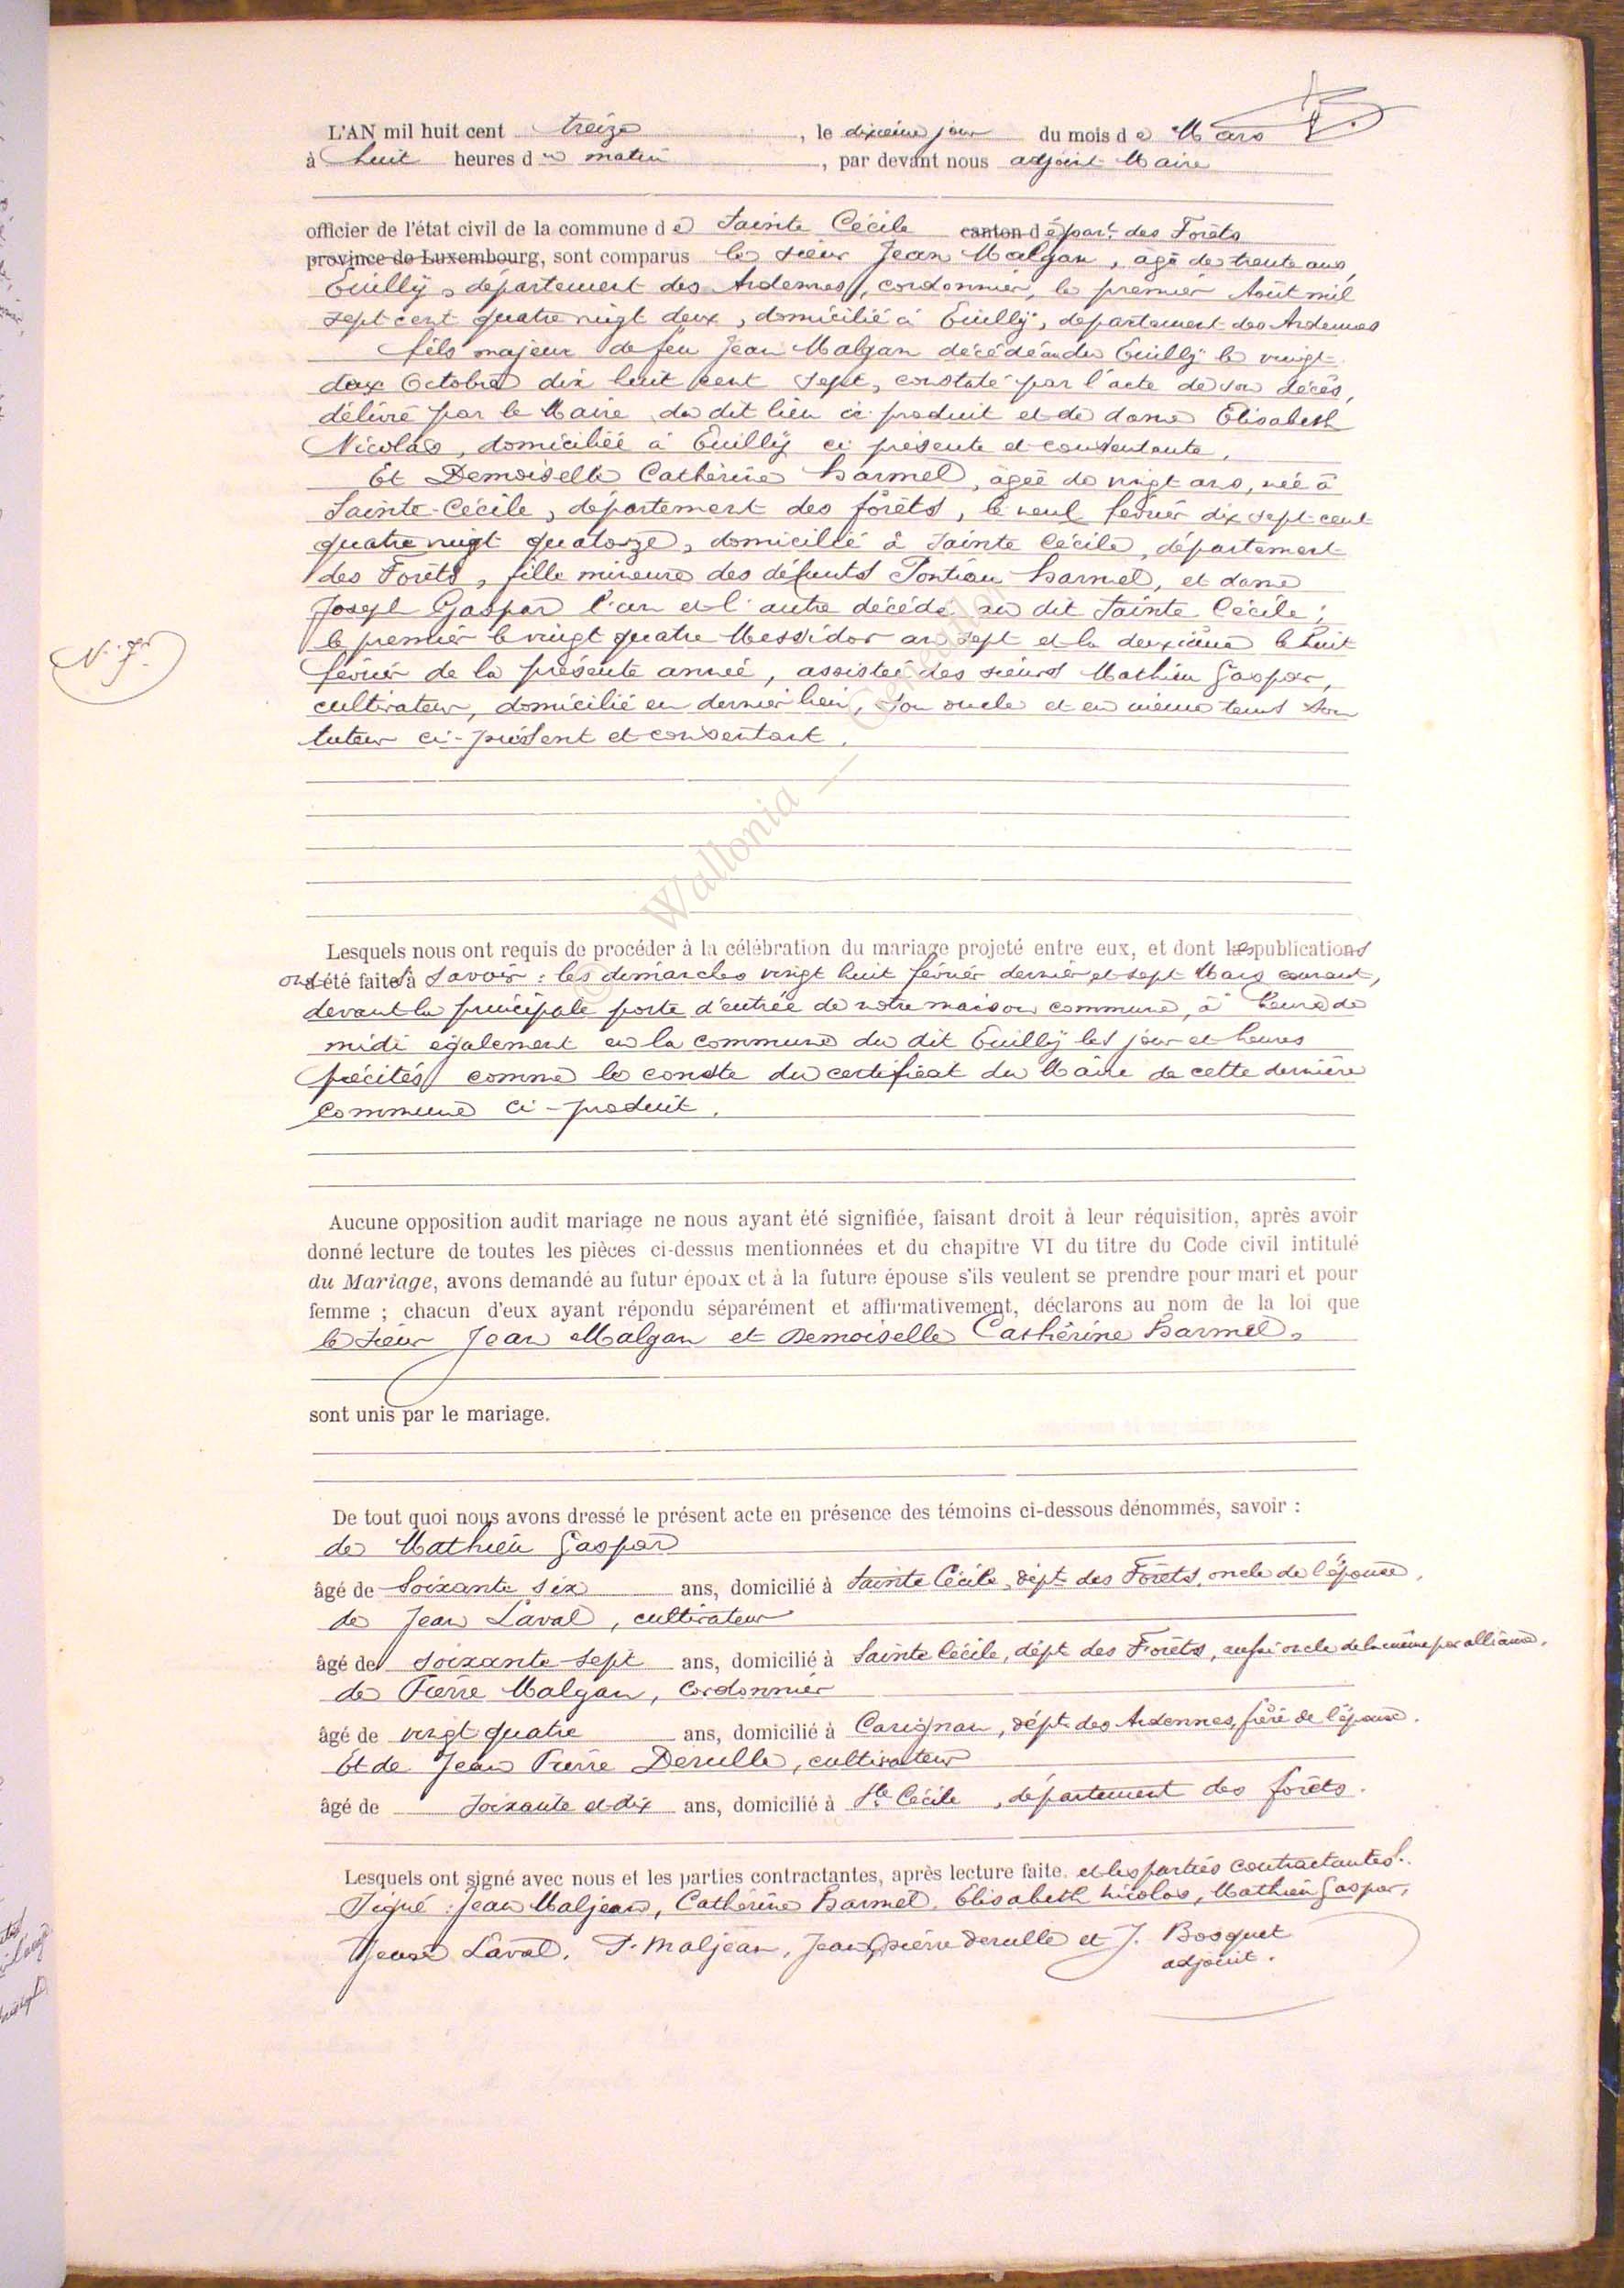 L'AN mil huit cent treize, le dixième jour du mois de Mars
à huit heures du matin, par devant nous adjoint Maire
officier de l'état civil de la commune de Sainte Cécile canton départ. des Forêts
province de Luxembourg, sont comparus le sieur Jean Malgan, âgé de trente ans,
Euilly, département des Ardennes, cordonnier, le premier Août mil
sept cent quatre vingt deux, domicilié à Euilly, departement des Ardennes
fils majeur de feu Jean Malgan décédé au du Euilly le vingt-
deux Octobre dix huit cent sept, constaté par l'acte de son décès,
délivré par le Maire du dit lieu ci produit et de dame Elisabeth
Nicolas, domiciliée à Euilly ci présente et consentante.
Et Demoiselle Cathérine Harmel, âgée de vingt ans, née à
Sainte-Cécile, département des forêts, le neuf février dix sept cent
quatre vingt quatorze, domicilié à Sainte Cécile, département
des Forêts, fille mineure des défunts Pontian Harmel, et dame
Joseph Gaspar l'un et l'autre décédé au dit Sainte Cécile;
le premier le vingt quatre Messidor an sept et la deuxième le huit
février de la présente année, assistée des sieurs Mathieu Gaspar,
N. 7.
cultivateur, domicilié en dernier lieu, son oncle et en même tems son
tuteur ci-présent et consentant.
Lesquels nous ont requis de procéder à la célébration du mariage projeté entre eux, et dont les publications
ont été faites à savoir: les dimanches vingt huit février dernier et sept Mars courant,
devant la principale porte d'entrée de notre maison commune, à heure de
midi également en la commune du dit Euilly les jour et heures
précités comme le conste du certificat du Maire de cette dernière
commune ci-produit.
Aucune opposition audit mariage ne nous ayant été signifiée, faisant droit à leur réquisition, après avoir
donné lecture de toutes les pièces ci-dessus mentionnées et du chapitre VI du titre du Code civil intitulé
du Mariage, avons demandé au futur époux et à la future épouse s'ils veulent se prendre pour mari et pour
femme ; chacun d'eux ayant répondu séparément et affirmativement, déclarons au nom de la loi que
le sieur Jean Malgan et Demoiselle Cathérine Harmel,
sont unis par le mariage.
De tout quoi nous avons dressé le présent acte en présence des témoins ci-dessous dénommés, savoir :
de Mathieu Gaspar
âgé de Soixante six ans, domicilié à Sainte Cécile, dépt des Forêts, oncle de l'épouse,
de Jean Laval, cultivateur
âgé de soixante-sept ans, domicilié à Sainte Cécile, dépt des Forêts, aussi oncle de la même par alliance,
de Pierre Malgan, Cordonnier
âgé de vingt quatre ans, domicilié à Carignan, dépt des Ardennes, frère de l'épouse.
Et de Jean Pierre Derulle, cultivateur
âgé de soixante et dix ans, domicilié à Ste Cécile, département des forêts.
Lesquels ont signé avec nous et les parties contractantes, après lecture faite. et les parties contractantes.
Signé: Jean Maljean, Cathérine Harmel, Elisabeth Nicolas, Mathieu Gaspar,
Jean Laval, P. Maljean, Jean pierre derulle et J. Bosquet
adjoint.
© Wallonia —